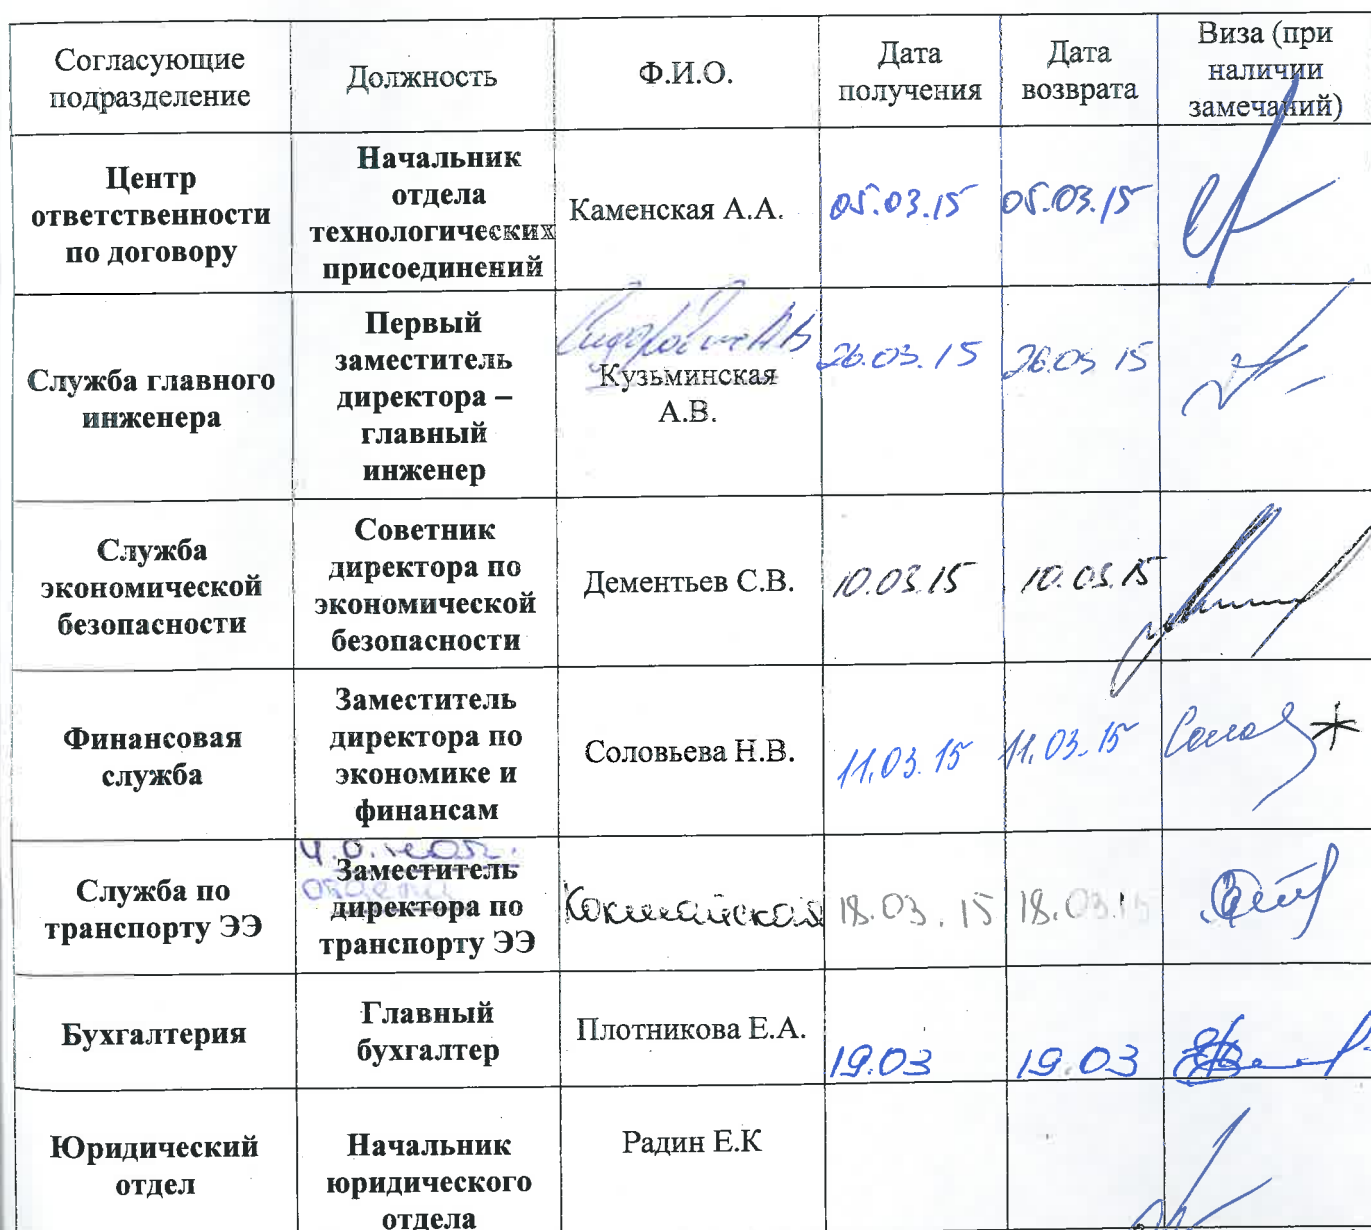 Согласующие подразделение
Должность
Ф.И.О.
Дата получения
Дата возврата
Виза (при наличии замечаний)
Центр ответственности по договору
Начальник отдела технологических присоединений
Каменская А.А.
05.03.15
05.03.15
Служба главного инженера
Первый заместитель директора – главный инженер
Кузьминская А.В.
26.03.15
26.03 15
Служба экономической безопасности
Советник директора по экономической безопасности
Дементьев С.В.
10.03.15
10.03.15
Финансовая служба
Заместитель директора по экономике и финансам
Соловьева Н.В.
11.03.15
11.03.15
Служба по транспорту ЭЭ
И.О. нач. отдела
Заместитель директора по транспорту ЭЭ
18.03.15
18.03.15
Бухгалтерия
Главный бухгалтер
Плотникова Е.А.
19.03
19.03
Юридический отдел
Начальник юридического отдела
Радин Е.К